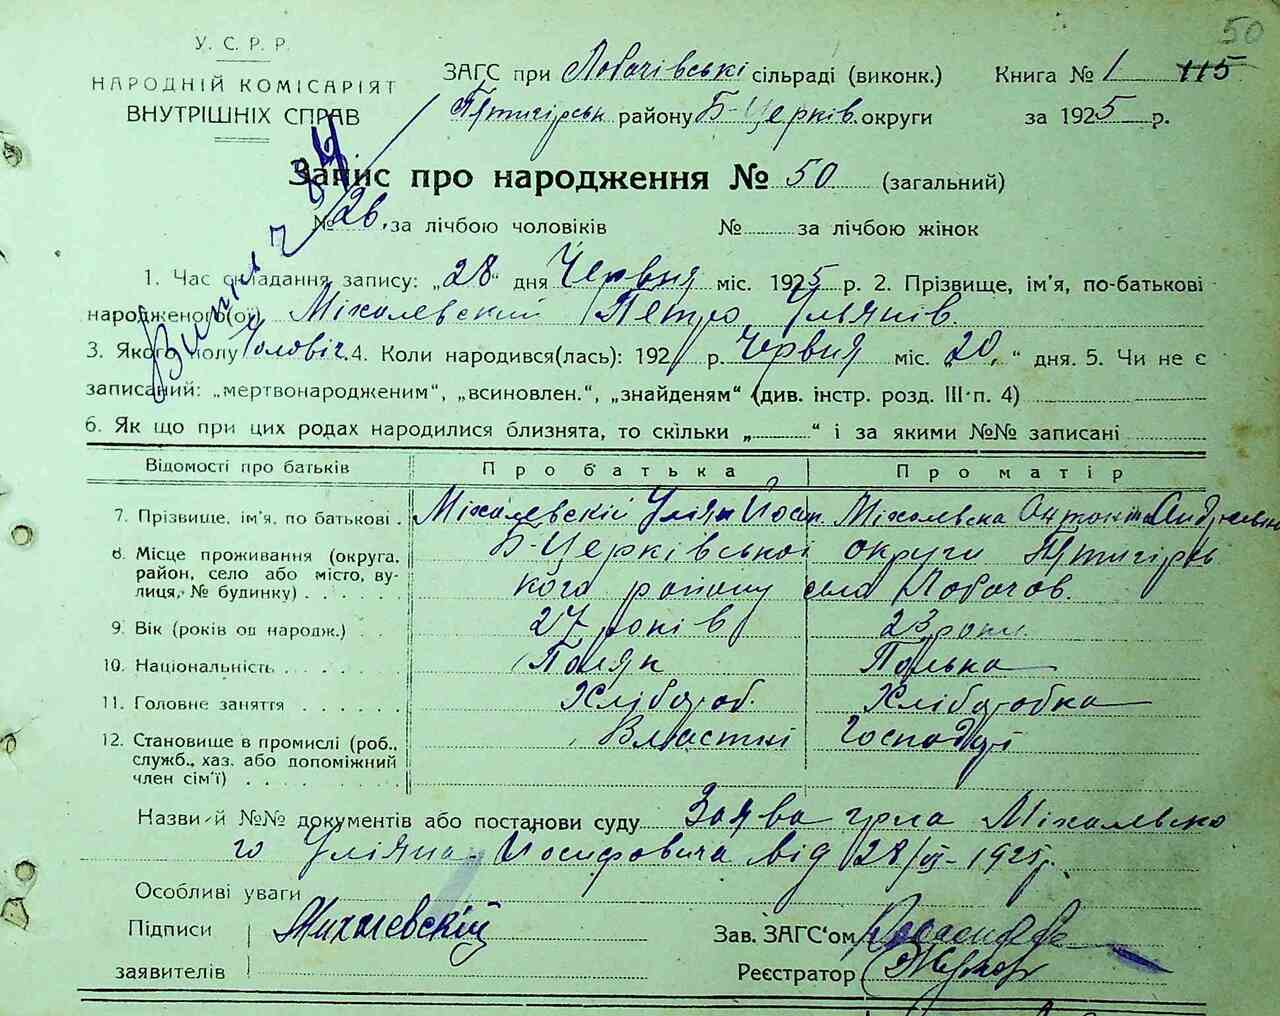 50
У. С. Р. Р.
НАРОДНІЙ КОМІСАРІЯТ
ВНУТРІШНІХ СПРАВ
ЗАГС при Лобачівські сільраді (виконк.) Книга № 1 115
Пятигірськ району Б-Церків. округи за 1925 р.
Запис про народження № 50 (загальний)
№ 26, за лічбою чоловіків № за лічбою жінок
1. Час складання запису: „28“ дня Червня міс. 1925 р. 2. Прізвище, ім'я, по-батькові
народженого(ої) Міхалевский Петро Ульянів.
3. Якого полу Чоловіч. 4. Коли народився(лась): 192 р. Червня міс. „20“ дня. 5. Чи не є
записаний: „мертвонародженим“, „всиновлен.“, „знайденям“ (див. інстр. розд. III п. 4)
6. Як що при цих родах народилися близнята, то скільки „ “ і за якими №№ записані
Відомості про батьків Про батька Про матір
7. Прізвище, ім'я, по батькові Міхалевскій Уліян Йосип. Міхалевска Антоніна Андреевна
8. Місце проживання (округа, район, село або місто, вулиця, № будинку) Б-Церківської округи Пятигірсь
кого району села Лобачов.
9. Вік (років од народж.) 27 років 23 роки.
10. Національність Поляк Полька
11. Головне заняття Хлібороб. Хліборобка
12. Становище в промислі (роб., служб., хаз. або допоміжний член сім'ї) Властні Господарі
Назви й №№ документів або постанови суду Заява гр-на Міхалевско
го Уліяна Йосифовича від 28/VI-1925 р.
Особливі уваги
Підписи Михалевскій Зав. ЗАГС'ом
заявителів Реєстратор